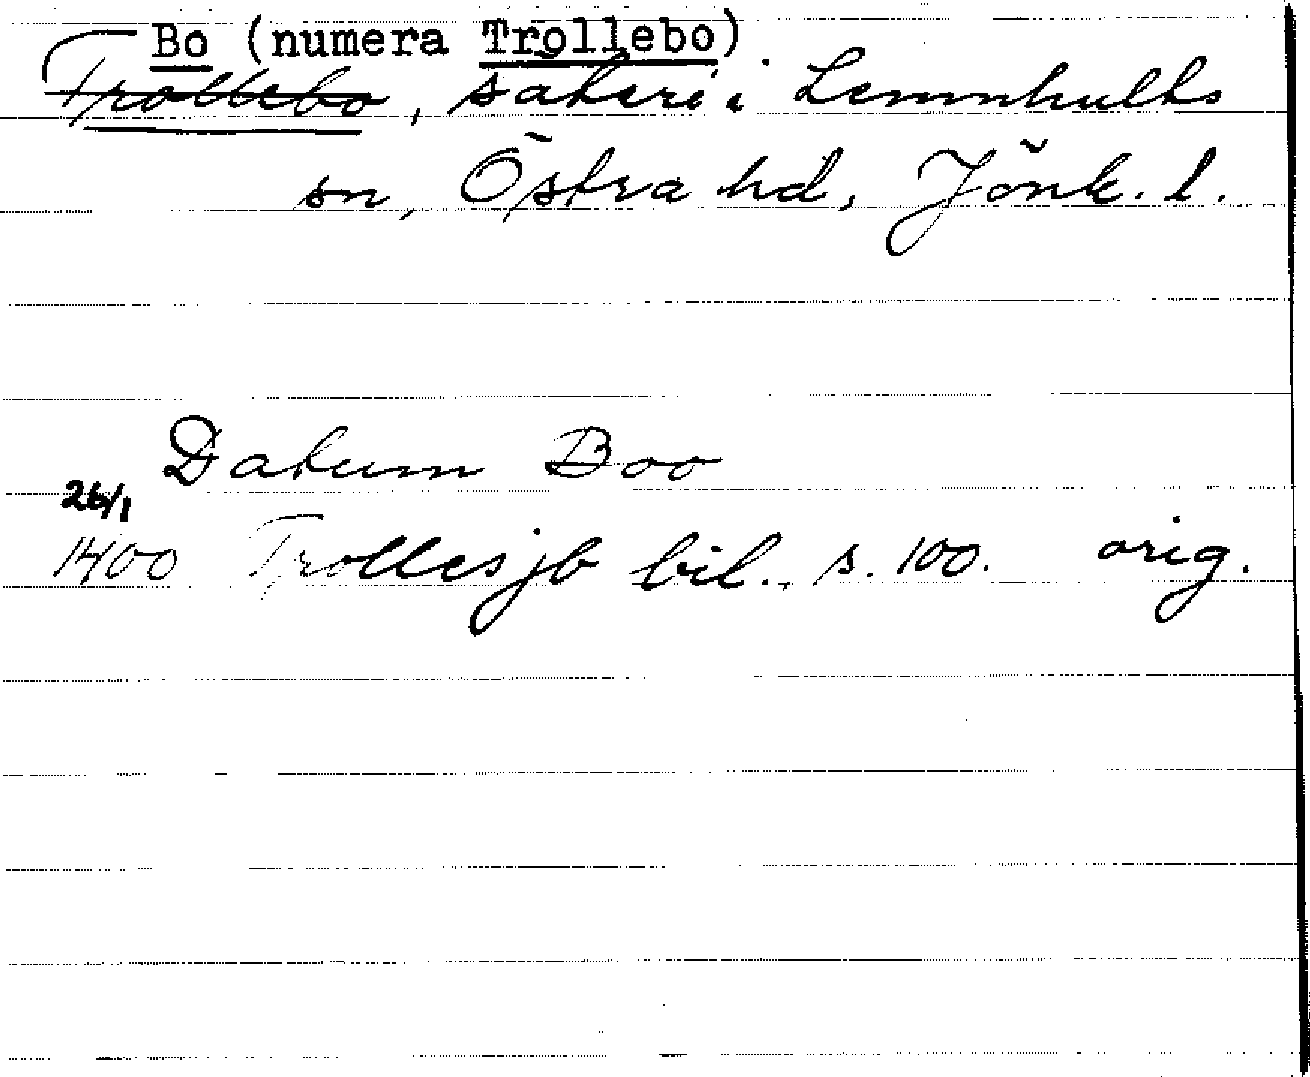 Bo (numera Trollebo)
Trollebo, säteri i Lemnhults
sn, Östra hd, Jönk. l.
Datum Boo
26/1
1400 Trollesjb bil., s. 100. orig.